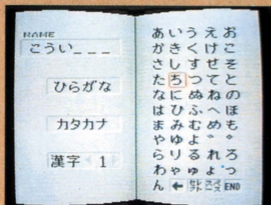 NAME
こうい___
ひらがな
カタカナ
漢字 1
あいうえお
かきくけこ
さしすせそ
たちつてと
なにぬねの
はひふへほ
まみむめも
やゆよ゛゜
らりるれろ
わゃゅょっ
ん ← END